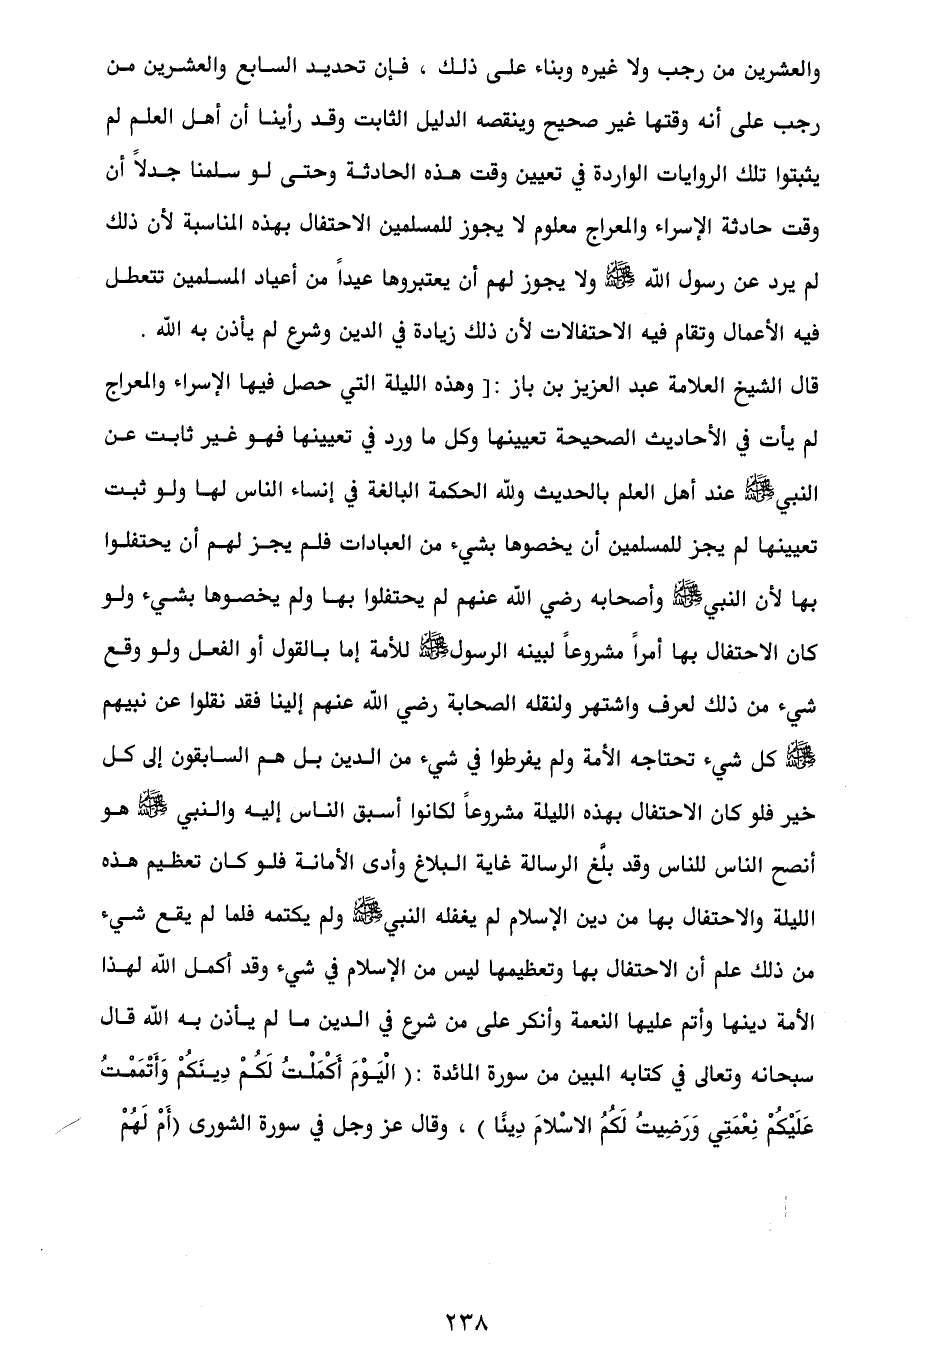 والعشرين من رجب ولا غيره وبناء على ذلك ، فإن تحديد السابع والعشرين من
رجب على أنه وقتها غير صحيح وينقصه الدليل الثابت وقد رأينا أن أهل العلم لم
يثبتوا تلك الروايات الواردة في تعيين وقت هذه الحادثة وحتى لو سلمنا جدلاً أن
وقت حادثة الإسراء والمعراج معلوم لا يجوز للمسلمين الاحتفال بهذه المناسبة لأن ذلك
لم يرد عن رسول الله ﷺ ولا يجوز لهم أن يعتبروها عيداً من أعياد المسلمين تتعطل
فيه الأعمال وتقام فيه الاحتفالات لأن ذلك زيادة في الدين وشرع لم يأذن به الله .
قال الشيخ العلامة عبد العزيز بن باز :[ وهذه الليلة التي حصل فيها الإسراء والمعراج
لم يأت في الأحاديث الصحيحة تعيينها وكل ما ورد في تعيينها فهو غير ثابت عن
النبي ﷺ عند أهل العلم بالحديث ولله الحكمة البالغة في إنساء الناس لها ولو ثبت
تعيينها لم يجز للمسلمين أن يخصوها بشيء من العبادات فلم يجز لهم أن يحتفلوا
بها لأن النبي ﷺ وأصحابه رضي الله عنهم لم يحتفلوا بها ولم يخصوها بشيء ولو
كان الاحتفال بها أمراً مشروعاً لبينه الرسول ﷺ للأمة إما بالقول أو الفعل ولو وقع
شيء من ذلك لعرف واشتهر ولنقله الصحابة رضي الله عنهم إلينا فقد نقلوا عن نبيهم
ﷺ كل شيء تحتاجه الأمة ولم يفرطوا في شيء من الدين بل هم السابقون إلى كل
خير فلو كان الاحتفال بهذه الليلة مشروعاً لكانوا أسبق الناس إليه والنبي ﷺ هو
أنصح الناس للناس وقد بلَّغ الرسالة غاية البلاغ وأدى الأمانة فلو كان تعظيم هذه
الليلة والاحتفال بها من دين الإسلام لم يغفله النبي ﷺ ولم يكتمه فلما لم يقع شيء
من ذلك علم أن الاحتفال بها وتعظيمها ليس من الإسلام في شيء وقد أكمل الله لهذا
الأمة دينها وأتم عليها النعمة وأنكر على من شرع في الدين ما لم يأذن به الله قال
سبحانه وتعالى في كتابه المبين من سورة المائدة :( الْيَوْمَ أَكْمَلْتُ لَكُمْ دِينَكُمْ وَأَتْمَمْتُ
عَلَيْكُمْ نِعْمَتِي وَرَضِيتُ لَكُمُ الاسْلامَ دِينًا ) ، وقال عز وجل في سورة الشورى (أَمْ لَهُمْ
٢٣٨